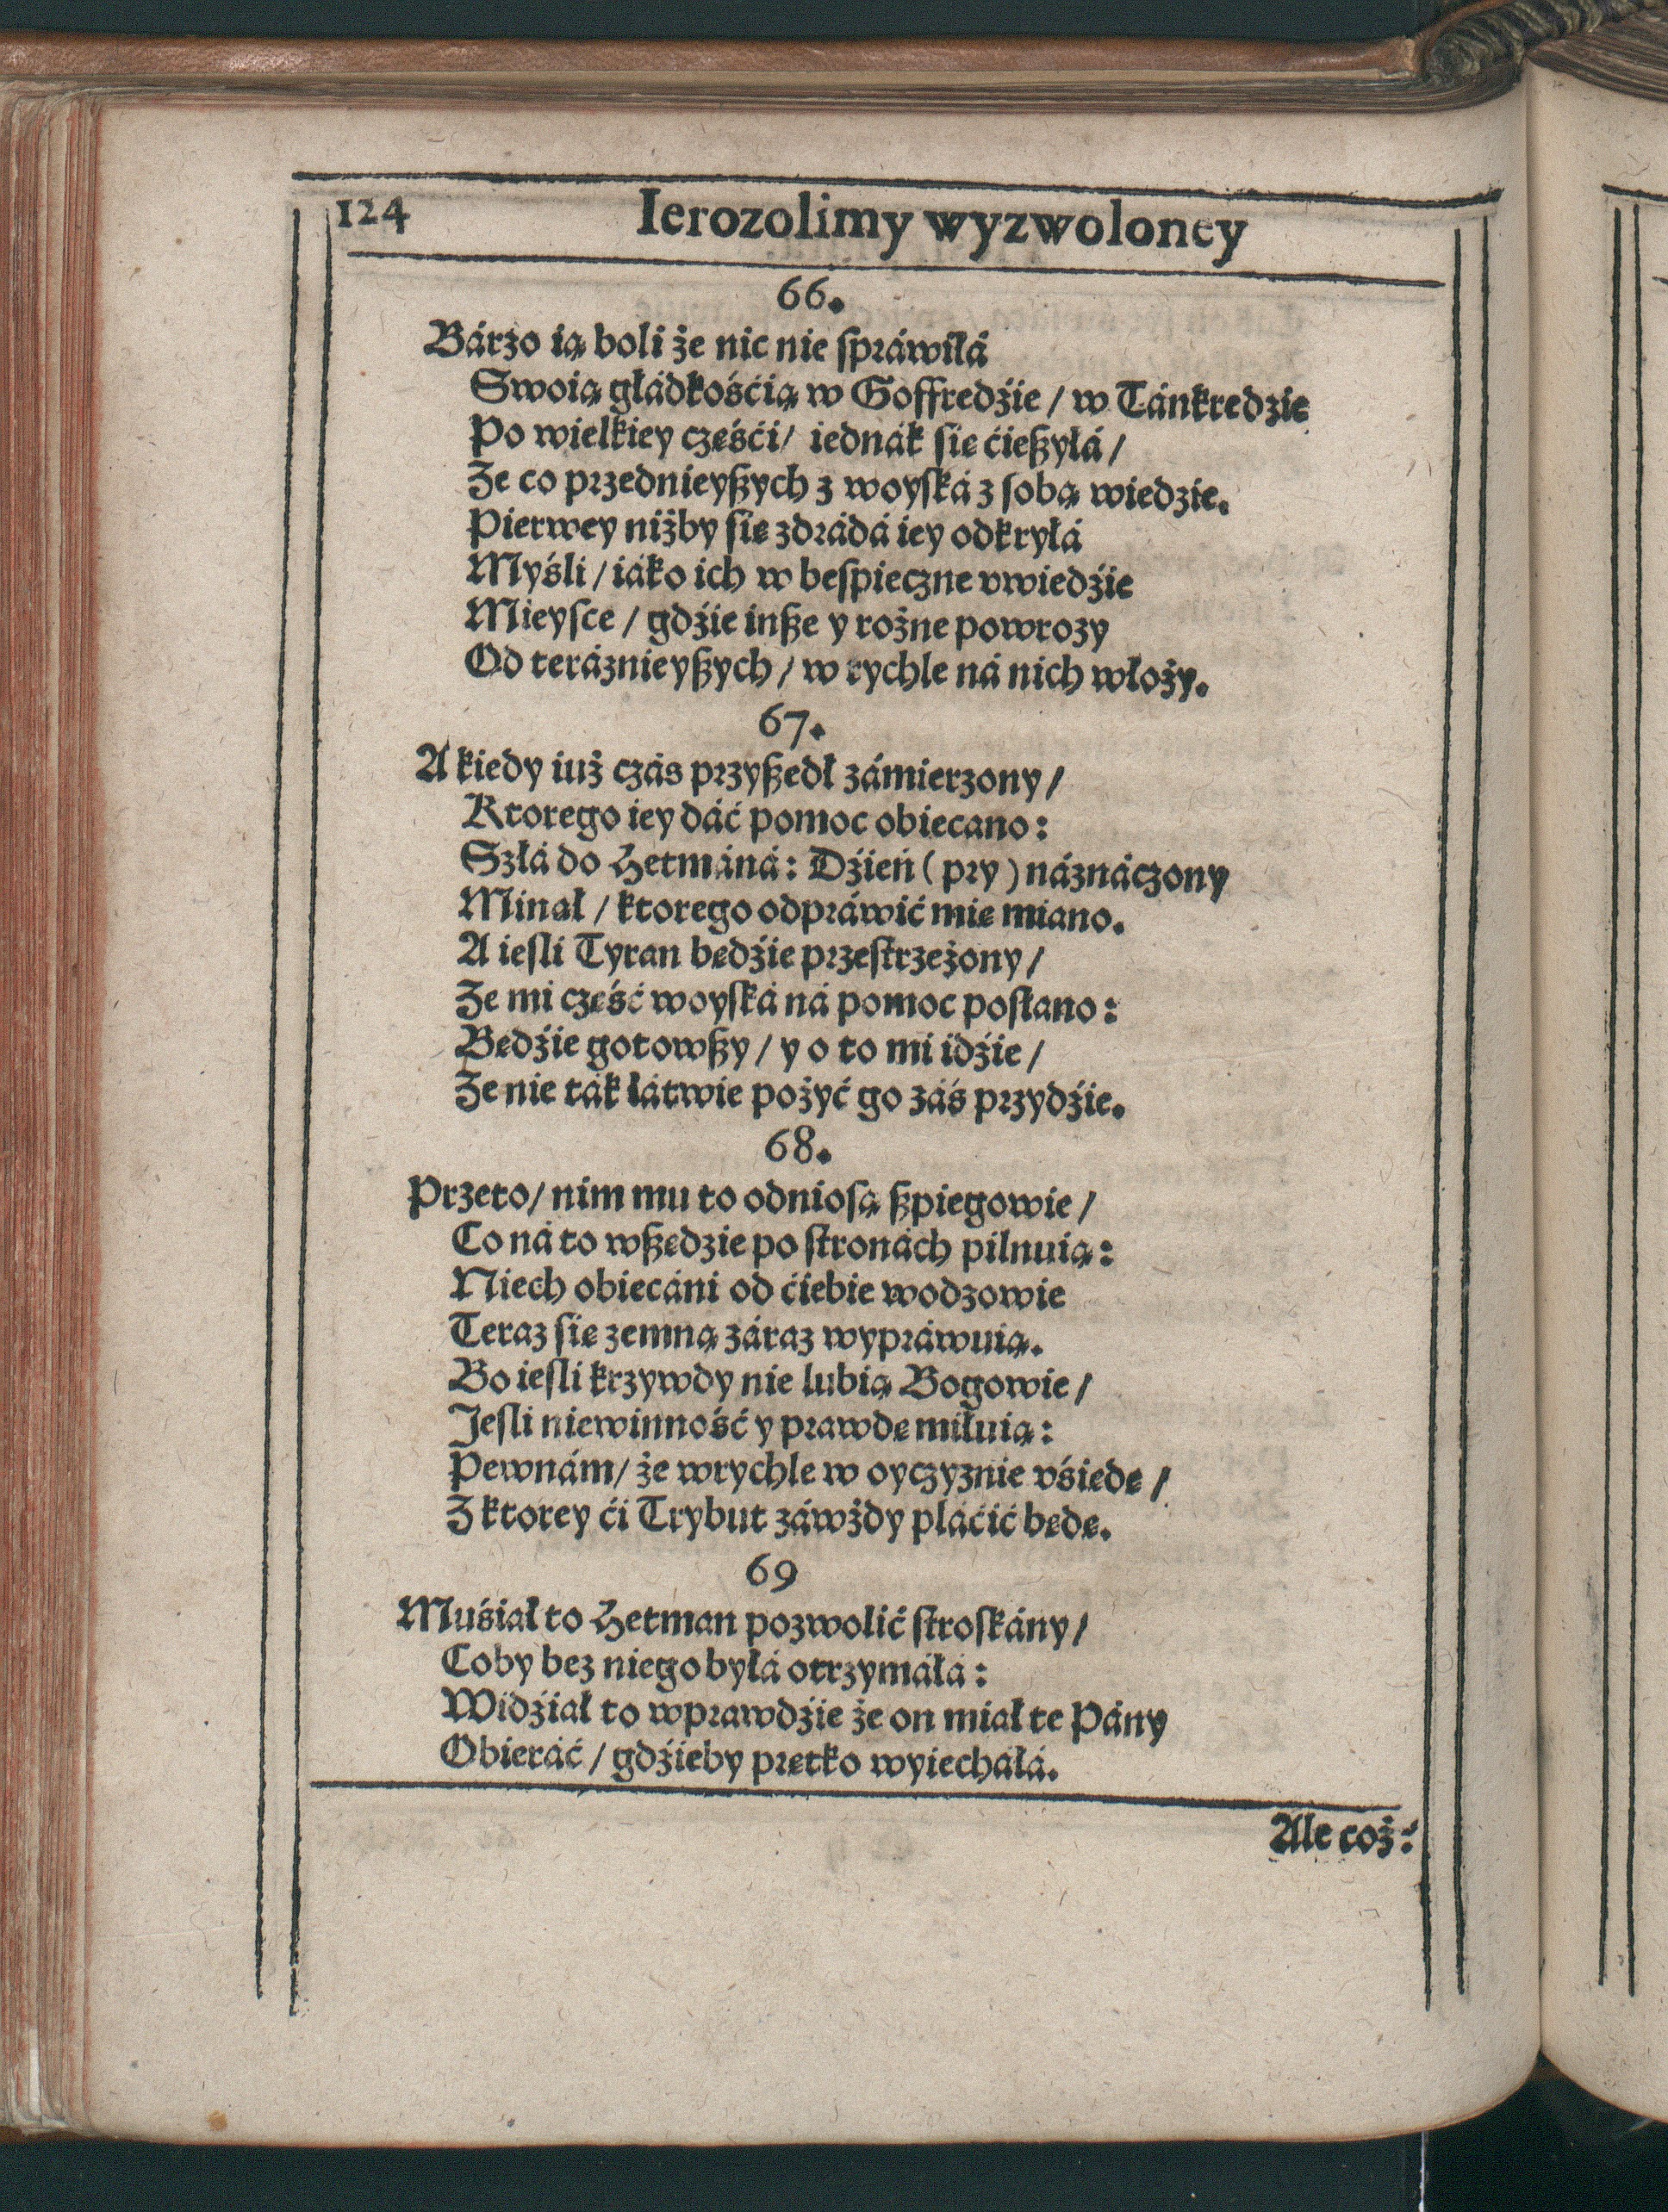 124 Ierozolimy wyzwoloney
66.
Bárzo ią boli że nic nie spráwiłá
Swoią głádkośćią w Goffredźie / w Tánkredzie
Po wielkiey częśći / iednák się ćieszyłá /
Że co przednieyszych z woyská z sobą wiedzie.
Pierwey niżby się zdrádá iey odkryłá
Myśli / iáko ich w bespieczne vwiedźie
Mieysce / gdźie insze y rożne powrozy
Od teráznieyszych / w rychle ná nich włoży.
67.
A kiedy iuż czás przyszedł zámierzony /
Ktorego iey dáć pomoc obiecano :
Szłá do Hetmáná : Dźień ( pry ) náznáczony
Minął / ktorego odpráwić mię miano.
A iesli Tyran będźie przestrzeżony /
Że mi część woyská ná pomoc posłano :
Będźie gotowszy / y o to mi idźie /
Że nie ták łátwie pożyć go záś przydźie.
68.
Przeto / nim mu to odniosą szpiegowie /
Co ná to wszędzie po stronách pilnuią :
Niech obiecáni od ćiebie wodzowie
Teraz się zemną záraz wypráwuią.
Bo iesli krzywdy nie lubią Bogowie /
Jesli niewinność y prawdę miłuią :
Pewnám / że wrychle w oyczyznie vśiędę /
Z ktorey ći Trybut záwżdy płáćić będę.
69
Muśiał to Hetman pozwolić stroskány /
Coby bez niego byłá otrzymáłá :
Widźiał to wprawdźie że on miał te Pány
Obieráć / gdźieby prętko wyiecháłá.
Ale coż :